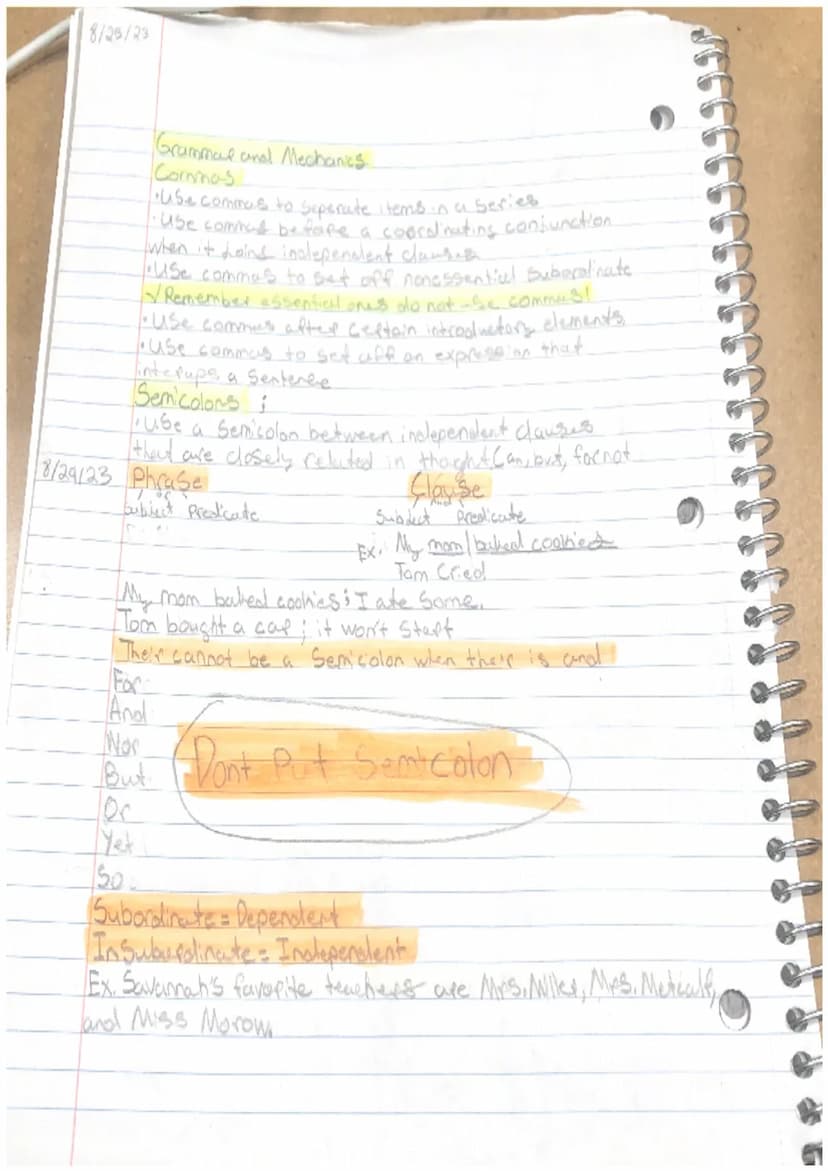 8/28/23
Grammar and Mechanics
Commas
•Use commas to seperate items in a series
•Use commas before a coordinating conjunction
when it joins independent clauses
•Use commas to set off nonessential subordinate
√Remember essential ones do not use commas!
•Use commas after certain introductory elements
•Use commas to set off an expression that
interups a sentence
Semicolons ;
•Use a semicolon between independent clauses
that are closely related in thoght. but, for not
8/29/23 Phrase Clause
or and
Subject Predicate Subject Predicate
Ex. My mom/baked cookies
Tom Cried
My mom baked cookies; I ate some.
Tom bought a car; it won't start
Their cannot be a Semicolon when their is and
For
And
Nor
Dont Put Semicolon
But
Or
Yet
So
Subordinate = Dependent
InSubordinate = Independent
Ex. Savannah's favorite teachers are Mrs. Niles, Mrs. Metcalf,
and Miss Morow.